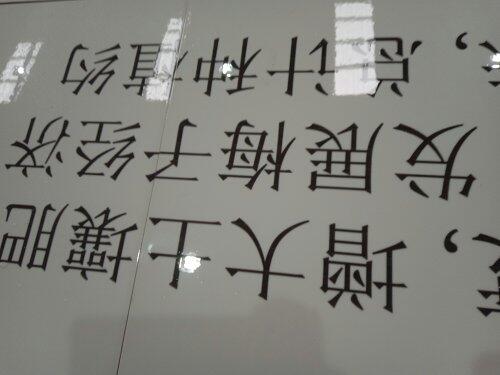 ，增大土壤肥
发展梅子经济
，总计种植约